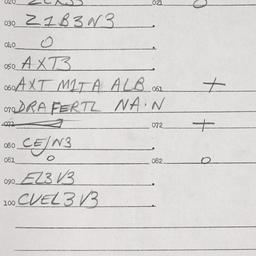 020 021 O
030 Z1B3N3
040 O
050 AXT3
060 AXT M1TA ALB 061 +
070 DRAFERTL NA·N
072 072 +
080 CE/N3
081 O 082 O
090 EL3V3
100 CVEL3V3